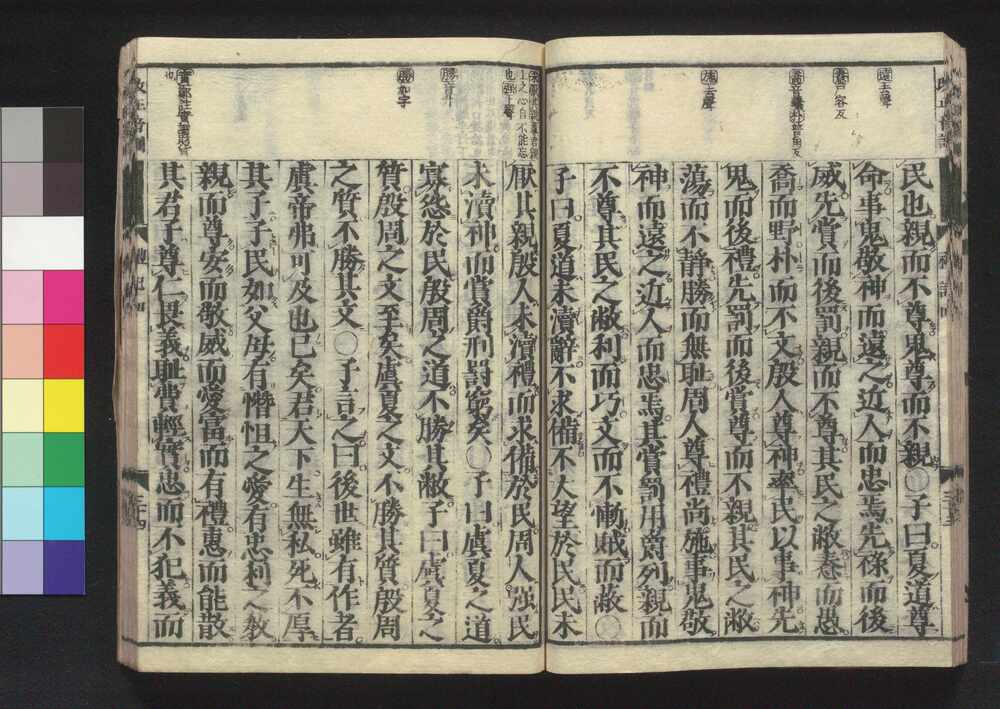 民也親而不尊鬼尊而不親○子曰夏道尊
命事鬼敬神而遠之近人而忠焉先祿而後
威先賞而後罰親而不尊其民之敝惷而愚
喬而野朴而不文殷人尊神率民以事神先
鬼而後禮先罰而後賞尊而不親其民之敝
蕩而不静勝而無耻周人尊禮尚施事鬼敬
神而遠之近人而忠焉其賞罰用爵列親而
不尊其民之敝利而巧文而不慚賊而蔽○
子曰夏道未瀆辭不求備不大望於民民未
厭其親殷人未瀆禮而求備於民周人强民
未瀆神而賞爵刑罰窮矣○子曰虞夏之道
寡怨於民殷周之道不勝其敝子曰虞夏之
質殷周之文至矣虞夏之文不勝其質殷周
之質不勝其文○子言之曰後世雖有作者
虞帝弗可及也已矣君天下生無私死不厚
其子子民如父母有憯怛之愛有忠利之教
親而尊安而敬威而愛富而有禮惠而能散
其君子尊仁畏義耻費輕實忠而不犯義而
遠去聲
施去聲
勝如字
禮記四